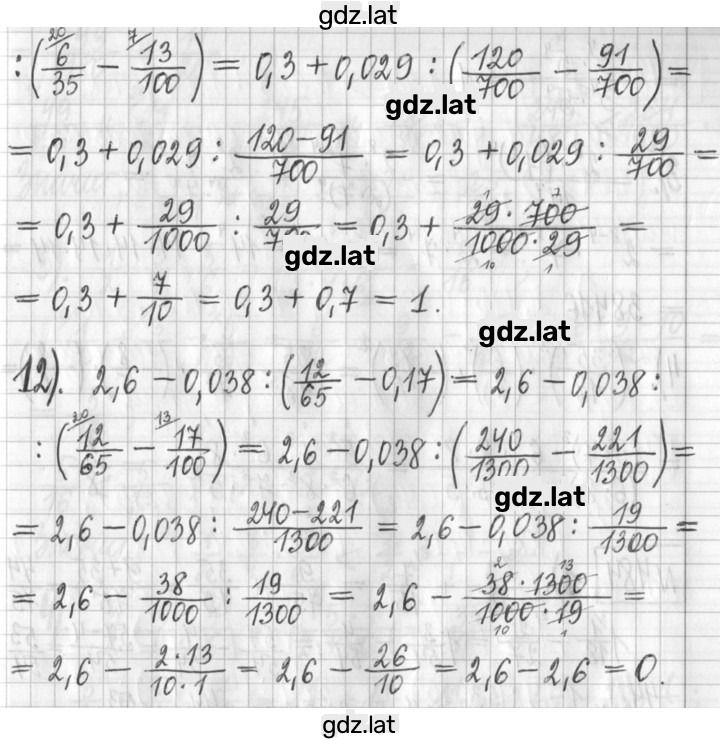 gdz.lat
: (20/ 6/35 − 7/ 13/100) = 0,3 + 0,029 : (120/700 − 91/700) =
gdz.lat
= 0,3 + 0,029 : (120−91)/700 = 0,3 + 0,029 : 29/700 =
= 0,3 + 29/1000 : 29/700 = 0,3 + (29 · 700)/(1000 · 29) =
gdz.lat
= 0,3 + 7/10 = 0,3 + 0,7 = 1.
gdz.lat
12). 2,6 − 0,038 : (12/65 − 0,17) = 2,6 − 0,038 :
: (20/ 12/65 − 13/ 17/100) = 2,6 − 0,038 : (240/1300 − 221/1300) =
gdz.lat
= 2,6 − 0,038 : (240−221)/1300 = 2,6 − 0,038 : 19/1300 =
= 2,6 − 38/1000 : 19/1300 = 2,6 − (38 · 1300)/(1000 · 19) =
= 2,6 − (2·13)/(10·1) = 2,6 − 26/10 = 2,6 − 2,6 = 0.
gdz.lat